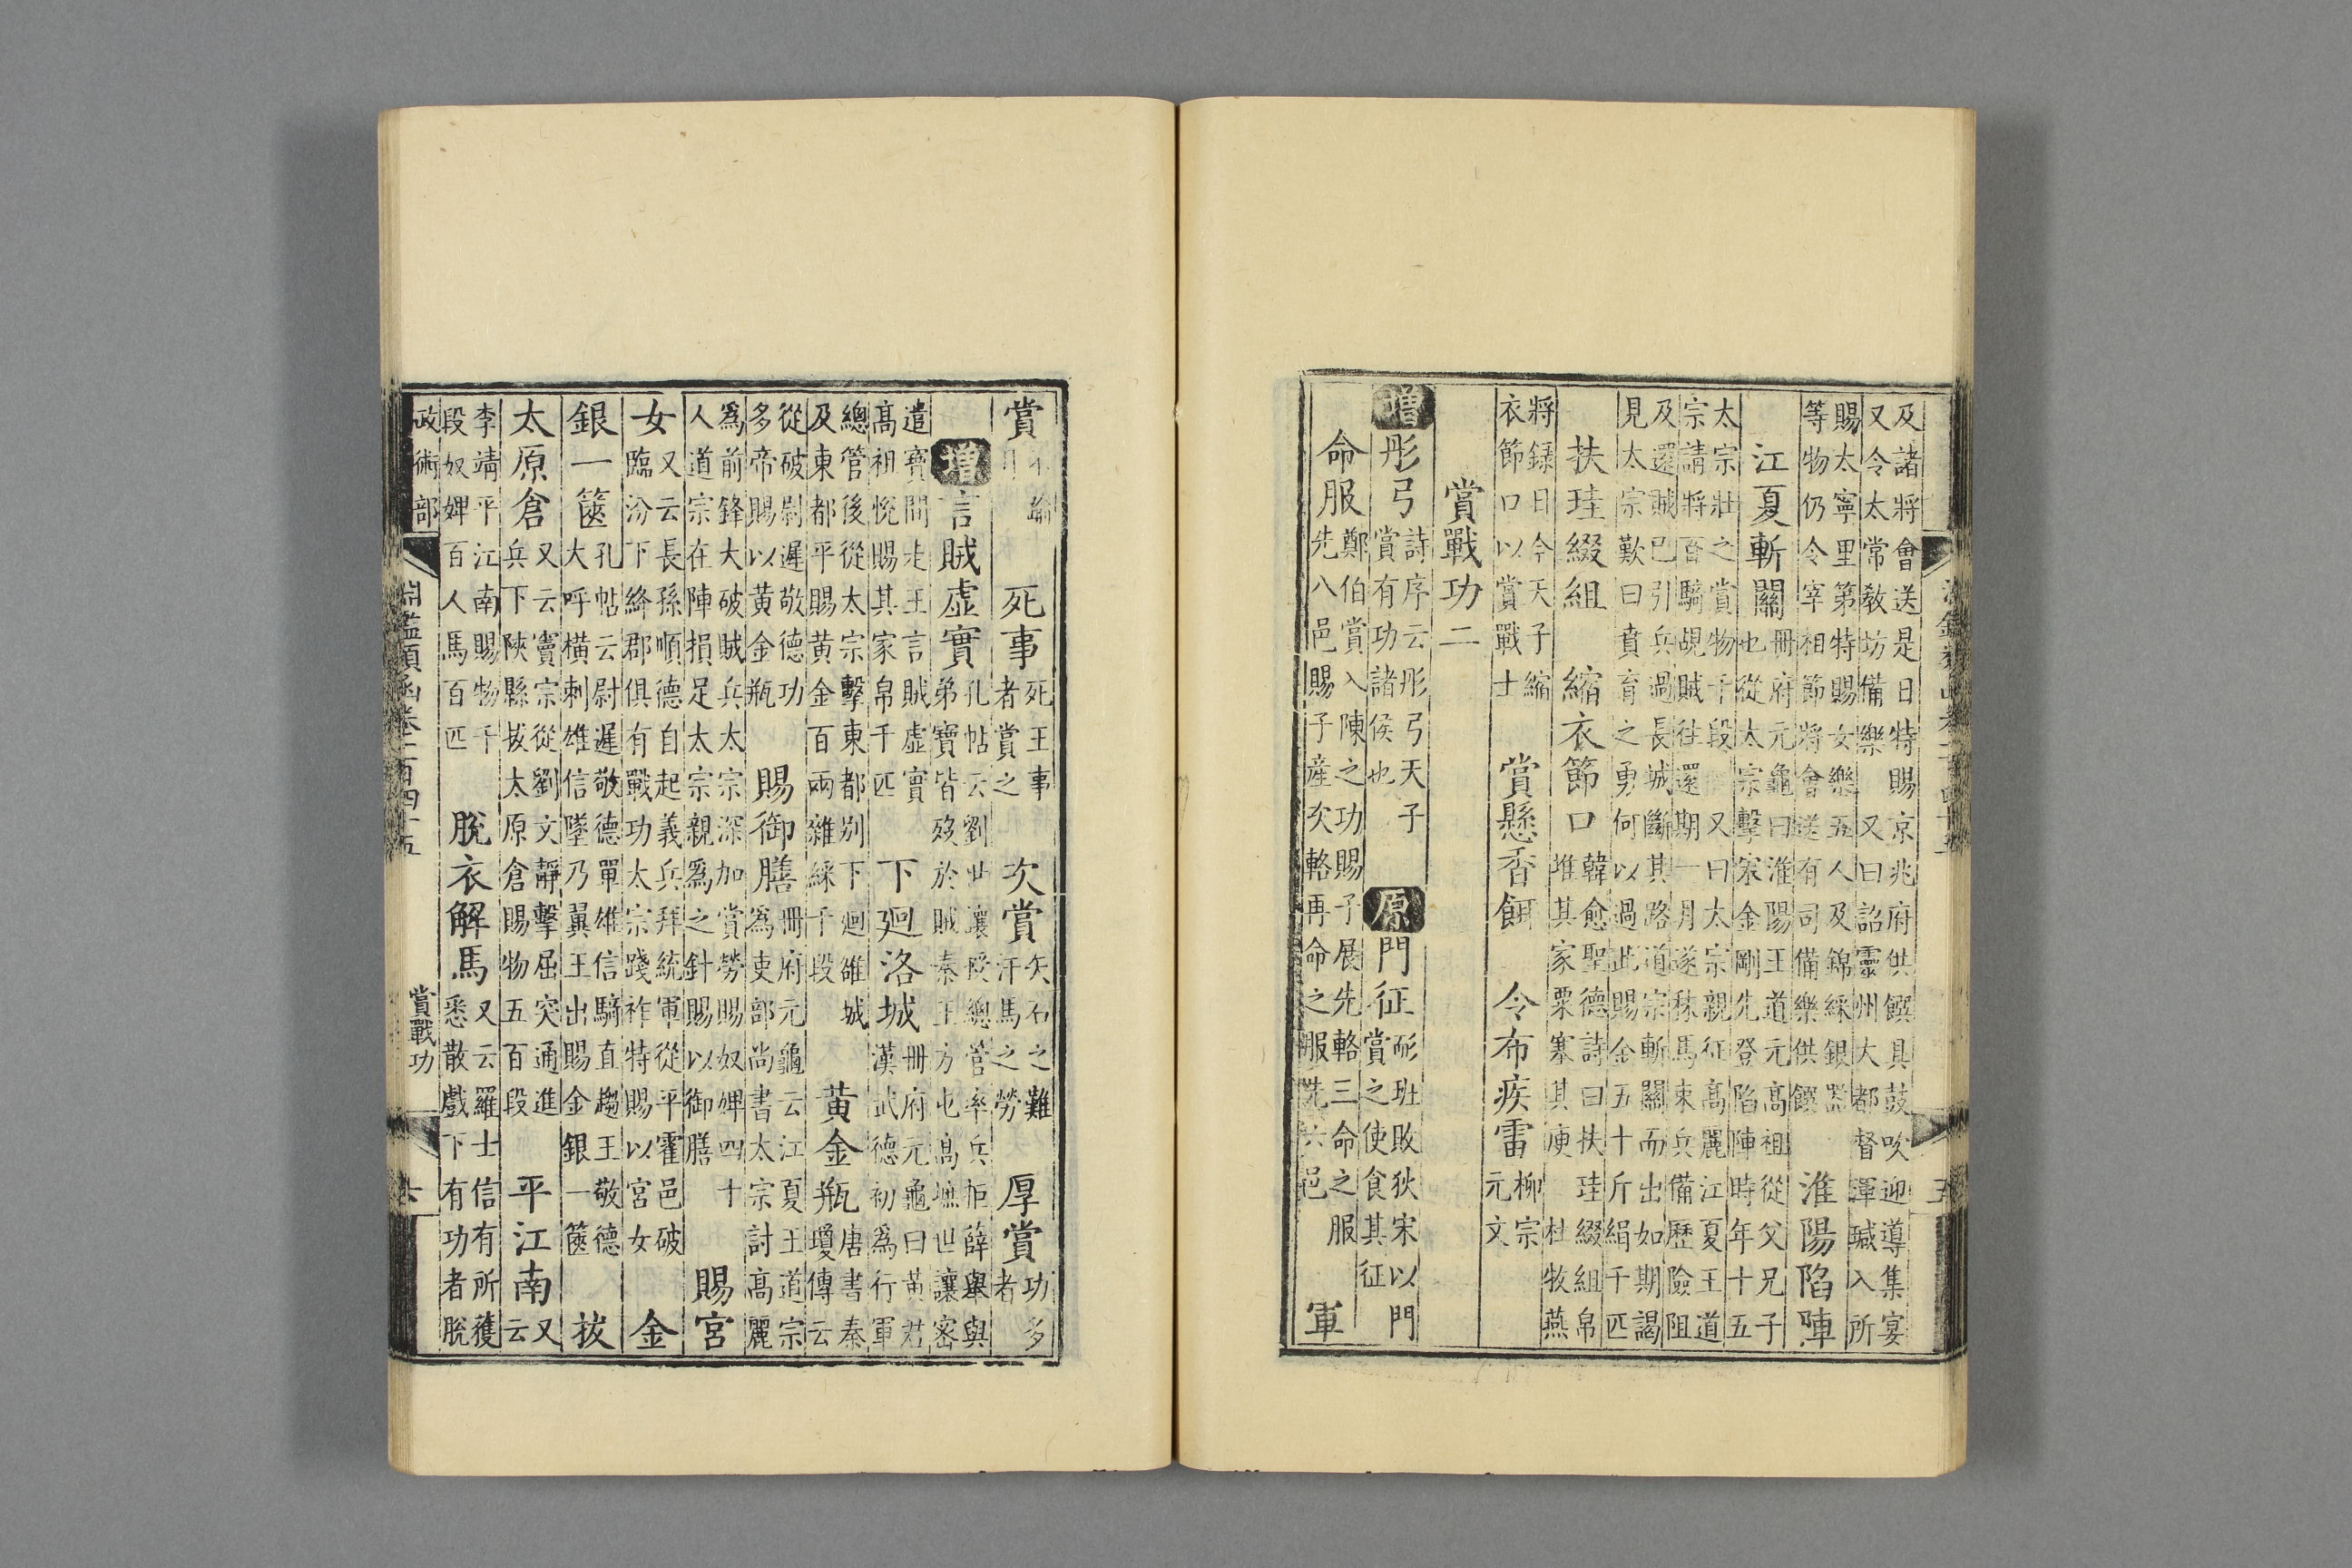 及諸將會送是日特賜京兆府供饌具鼓吹迎導集宴
又令太常教坊備樂 又曰詔靈州大都督渾瑊入所
賜太寧里第特賜女樂五人及錦綵銀器
等物仍令宰相節將會送有司備樂供饌 淮陽陷陣
江夏斬關 冊府元龜曰淮陽王道元高祖從父兄子
也從太宗擊宋金剛先登陷陣時年十五
太宗壯之賞物千段 又曰太宗親征高麗江夏王道
宗請將百騎覘賊往還期一月遂秣馬束兵備歷險阻
及還賊已引兵過長城斷其路道宗斬關而出如期謁
見太宗歎曰賁育之勇何以過此賜金五十斤絹千匹
扶珪綴組 縮衣節口 韓愈聖德詩曰扶珪綴組帛
堆其家粟塞其庾 杜牧燕
將録曰今天子縮
衣節口以賞戰士 賞懸香餌 令布疾雷 柳宗
元文
賞戰功二
增 彤弓 詩序云彤弓天子
賞有功諸侯也 原 門征 耏班敗狄宋以門
賞之使食其征
命服 鄭伯賞入陳之功賜子展先輅三命之服
先八邑賜子産次輅再命之服先六邑 軍
賞 不踰
月 死事 死王事
者賞之 次賞 矢石之難
汗馬之勞 厚賞 功多
者
增 言賊虛實 孔帖云劉世讓授總管率兵拒薛舉與
弟寶皆歿於賊秦王方屯高墌世讓密
遣寶間走王言賊虛實
高祖悅賜其家帛千匹 下迴洛城 冊府元龜曰黃君
漢武德初為行軍
總管後從太宗擊東都别下迴雒城
及東都平賜黃金百兩雜綵千段 黃金瓶 唐書秦
瓊傳云
從破尉遲敬德功
多帝賜以黃金瓶 賜御膳 冊府元龜云江夏王道宗
為吏部尚書太宗討高麗
為前鋒大破賊兵太宗深加賞勞賜奴婢四十
人道宗在陣損足太宗親為之針賜以御膳 賜宮
女 又云長孫順德自起義兵拜統軍從平霍邑破
臨汾下絳郡俱有戰功太宗踐祚特賜以宮女 金
銀一篋 孔帖云尉遲敬德單雄信騎直趨王敬德
大呼橫刺雄信墜乃翼王出賜金銀一篋 拔
太原倉 又云竇宗從劉文靜擊屈突通進
兵下陝縣拔太原倉賜物五百段 平江南 又
云
李靖平江南賜物千
段奴婢百人馬百匹 脫衣解馬 又云羅士信有所獲
悉散戲下有功者脫
政術部 淵鑑類函卷二百四十五 賞戰功 六